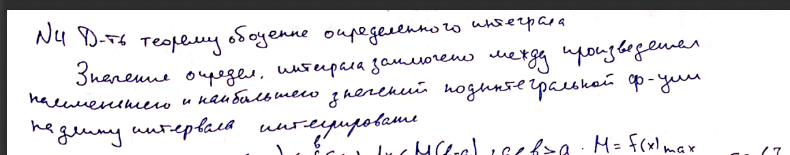 N4 Д-ть теорему об оценке определенного интеграла
Значение опредед. интеграла заключено между произведением
наименьшего и наибольшего значений подинтегральной ф-ции
на длину интервала интегрирования
M(b-a), где b>a. M = f(x) max